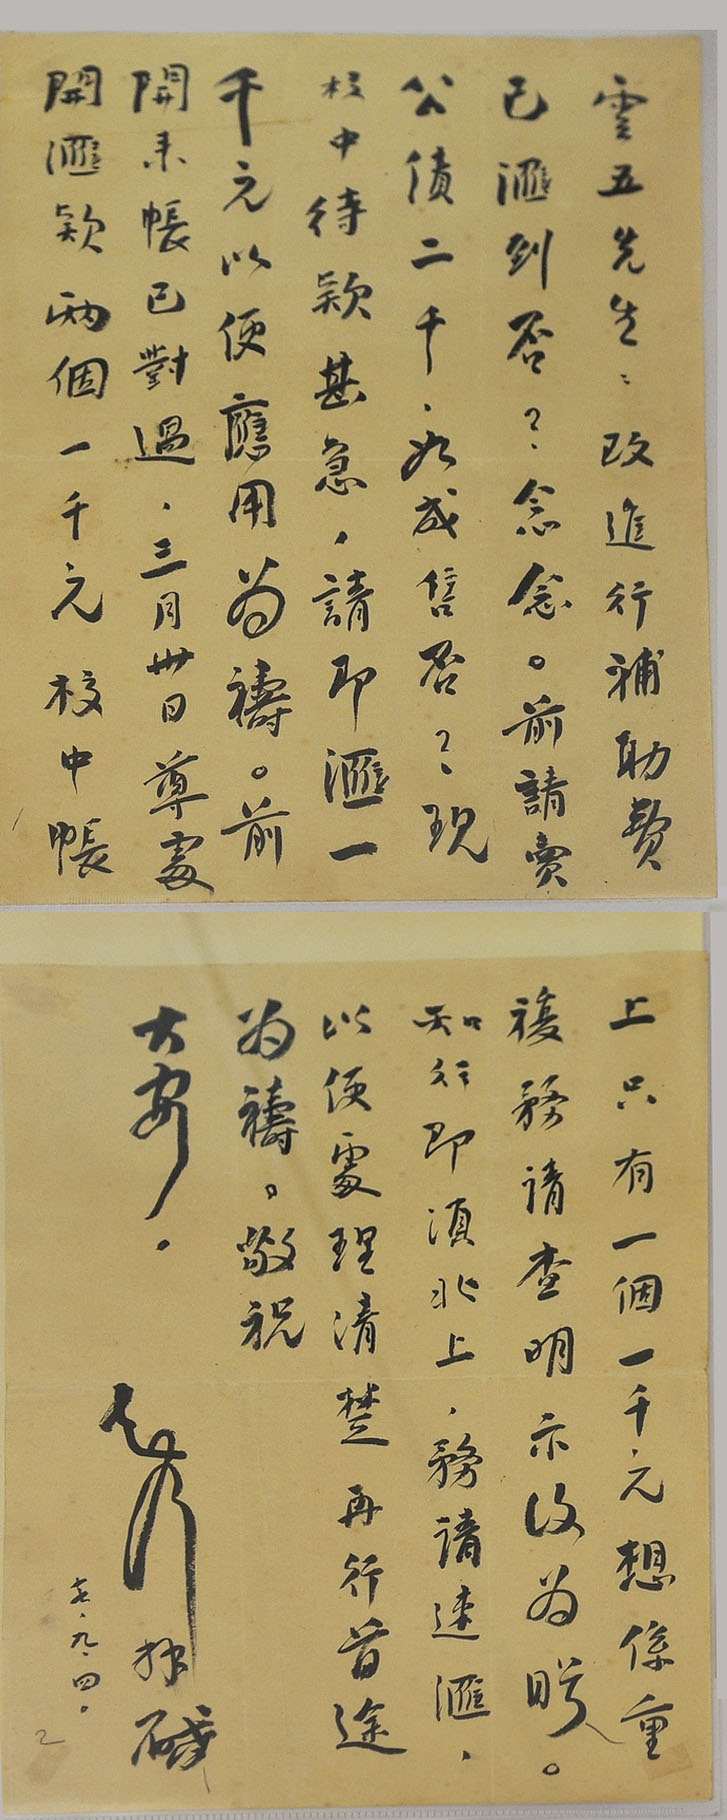 雲五先生：改進行補助費
已滙到否？念念。前請賣
公債二千，如成售否？現
校中待款甚急，請即滙一
千元以便應用為禱。前
開來帳已對過，三月卅日尊處
開滙款兩個一千元校中帳
上只有一個一千元想係重
複務請查明示復为盼。
知行即須北上，務請速滙，
以便處理清楚再行首途
为禱。敬祝
大安。
知行 拜啟
九、四。
2